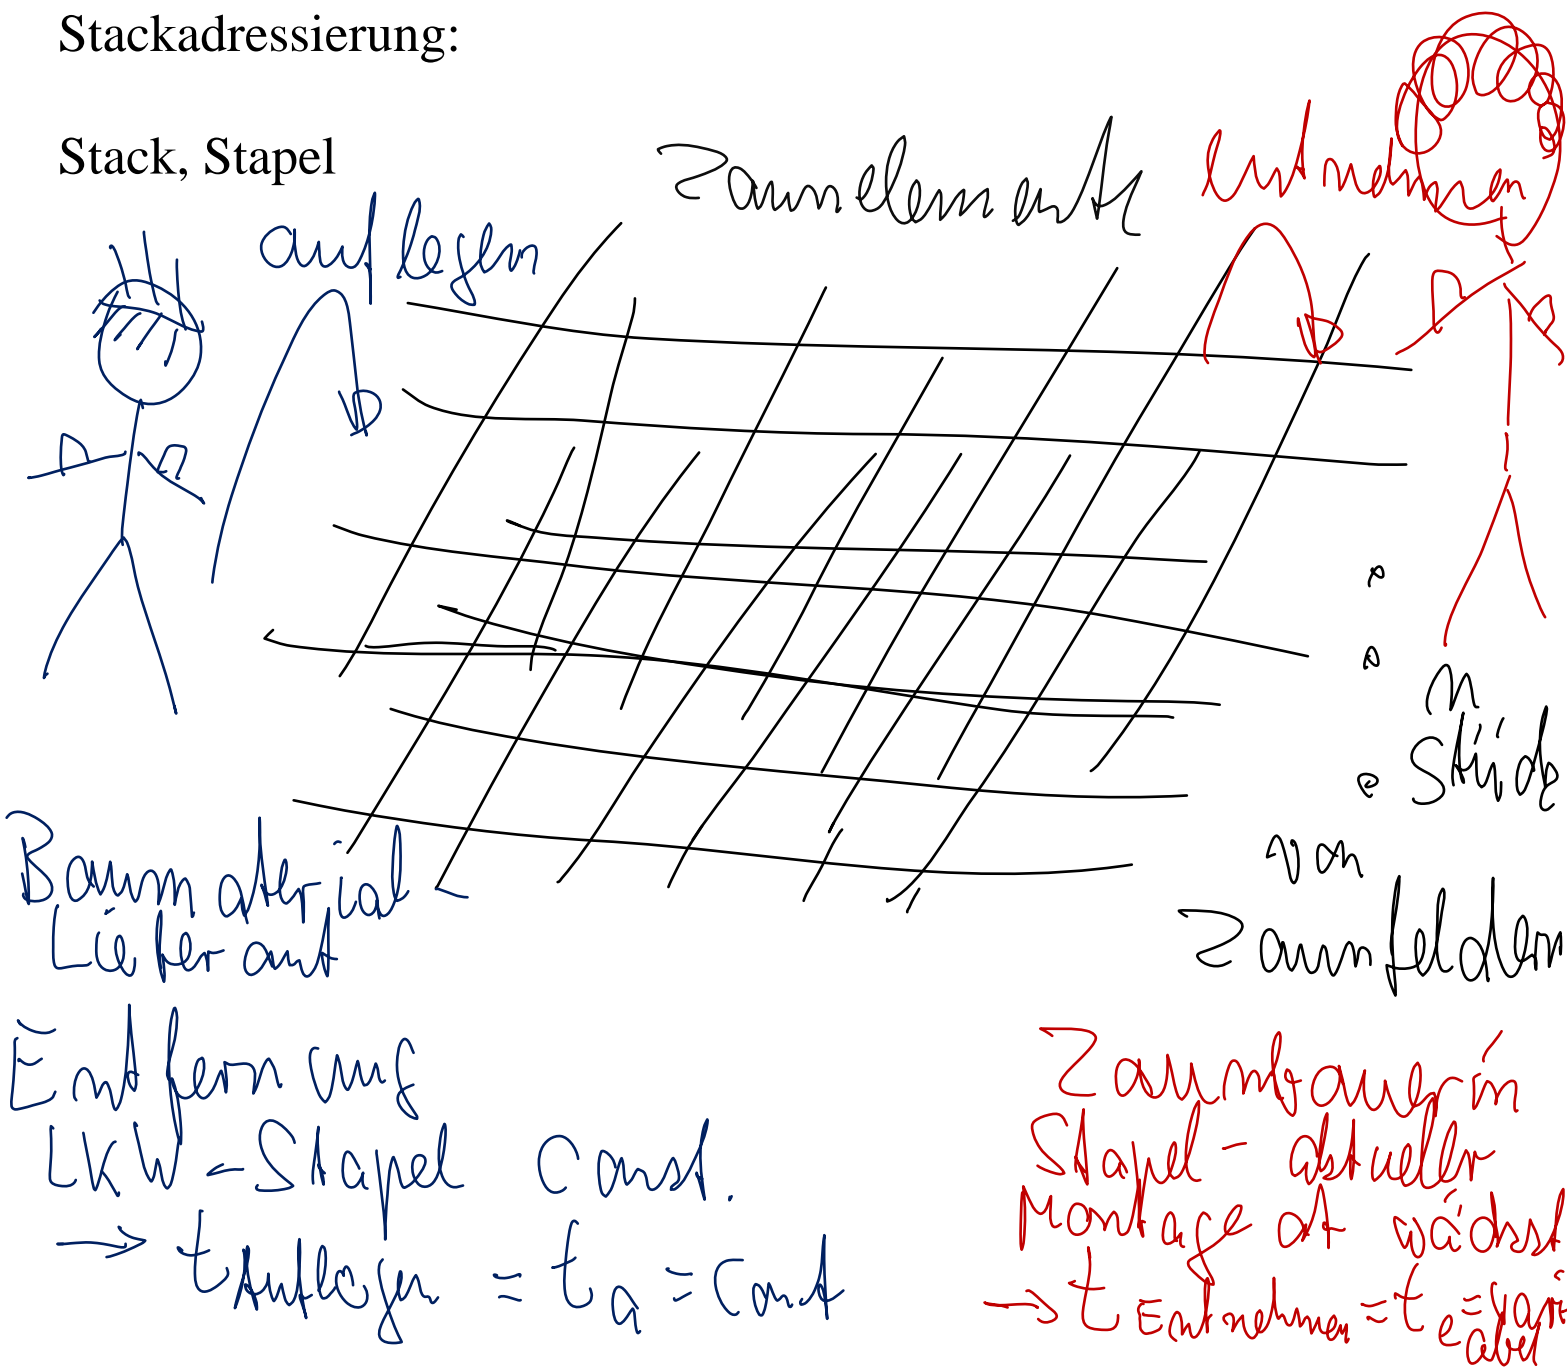 Stackadressierung:
Stack, Stapel
Zaunelemente
entnehmen
auflegen
n
Stück
von
Zaunfeldern
Baumaterial-
Lieferant
Entfernung
LKW-Stapel const.
→ t Auflegen = t a = const
Zaunbauerin
Stapel - aktueller
Montageort wächst
→ t Entnehmen = t e = vari
abel